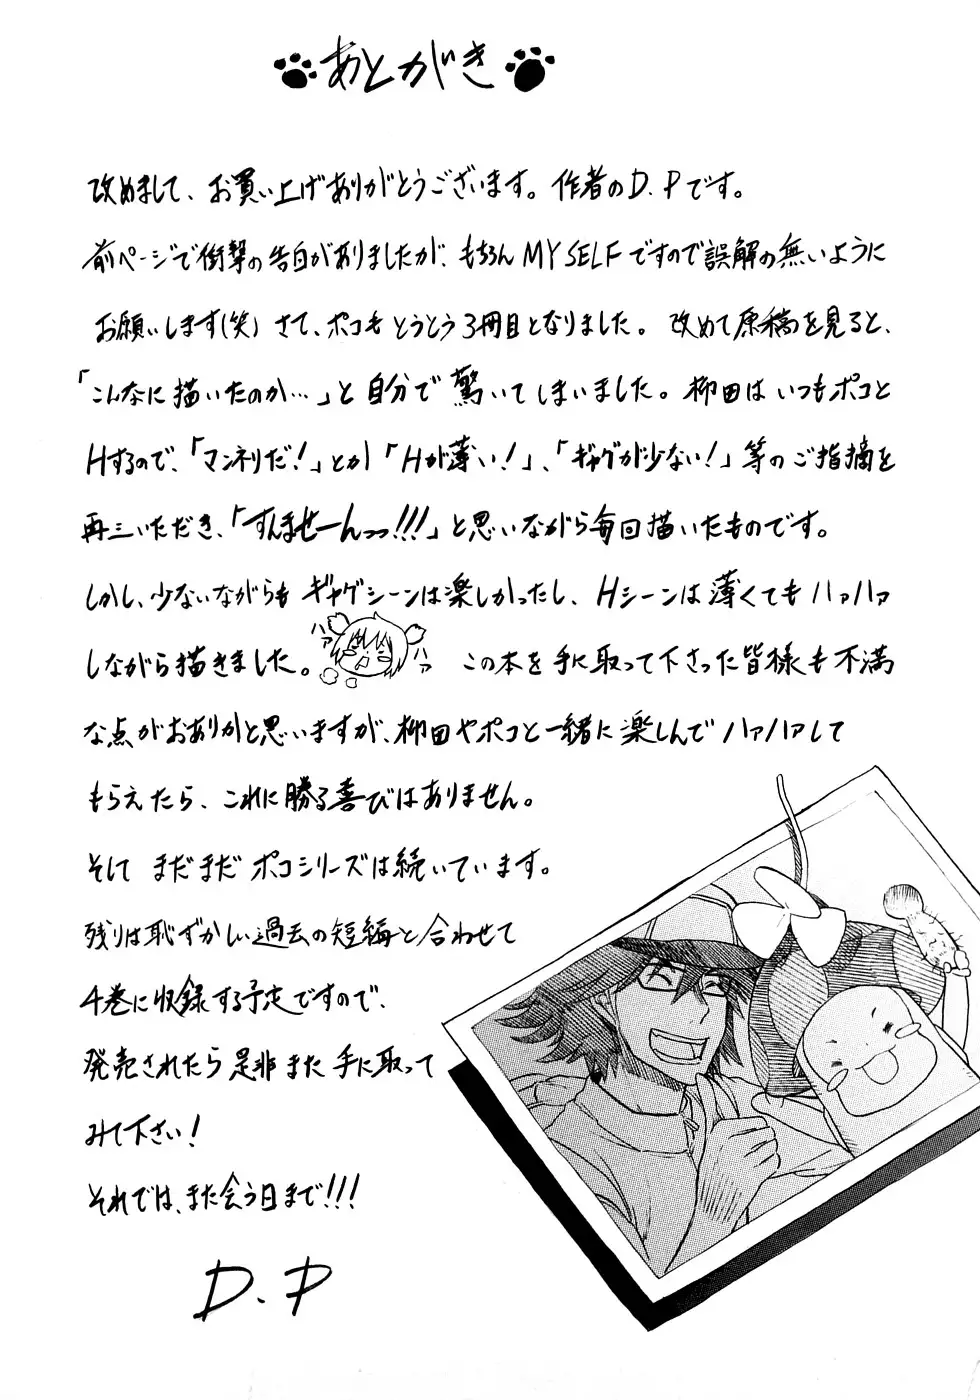 あとがき
改めまして、お買い上げありがとうございます。作者のD.Pです。
前ページで衝撃の告白がありましたが、もちろんMYSELFですので誤解の無いように
お願いします(笑) さて、ポコもとうとう3冊目となりました。改めて原稿を見ると、
「こんなに描いたのか…」と自分で驚いてしまいました。柳田はいつもポコと
Hするので、「マンネリだ!」とか「Hが薄い!」、「ギャグが少ない!」等のご指摘を
再三いただき、「すんませーんっっ!!!」と思いながら毎回描いたものです。
しかし、少ないながらもギャグシーンは楽しかったし、Hシーンは薄くてもハァハァ
しながら描きました。
ハァ
ハァ
この本を手に取って下さった皆様も不満
な点がおありかと思いますが、柳田やポコと一緒に楽しんでハァハァして
もらえたら、これに勝る喜びはありません。
そして まだまだ ポコシリーズは続いています。
残りは恥ずかしい過去の短編と合わせて
4巻に収録する予定ですので、
発売されたら是非また手に取って
みて下さい!
それでは、また会う日まで!!!
D.P